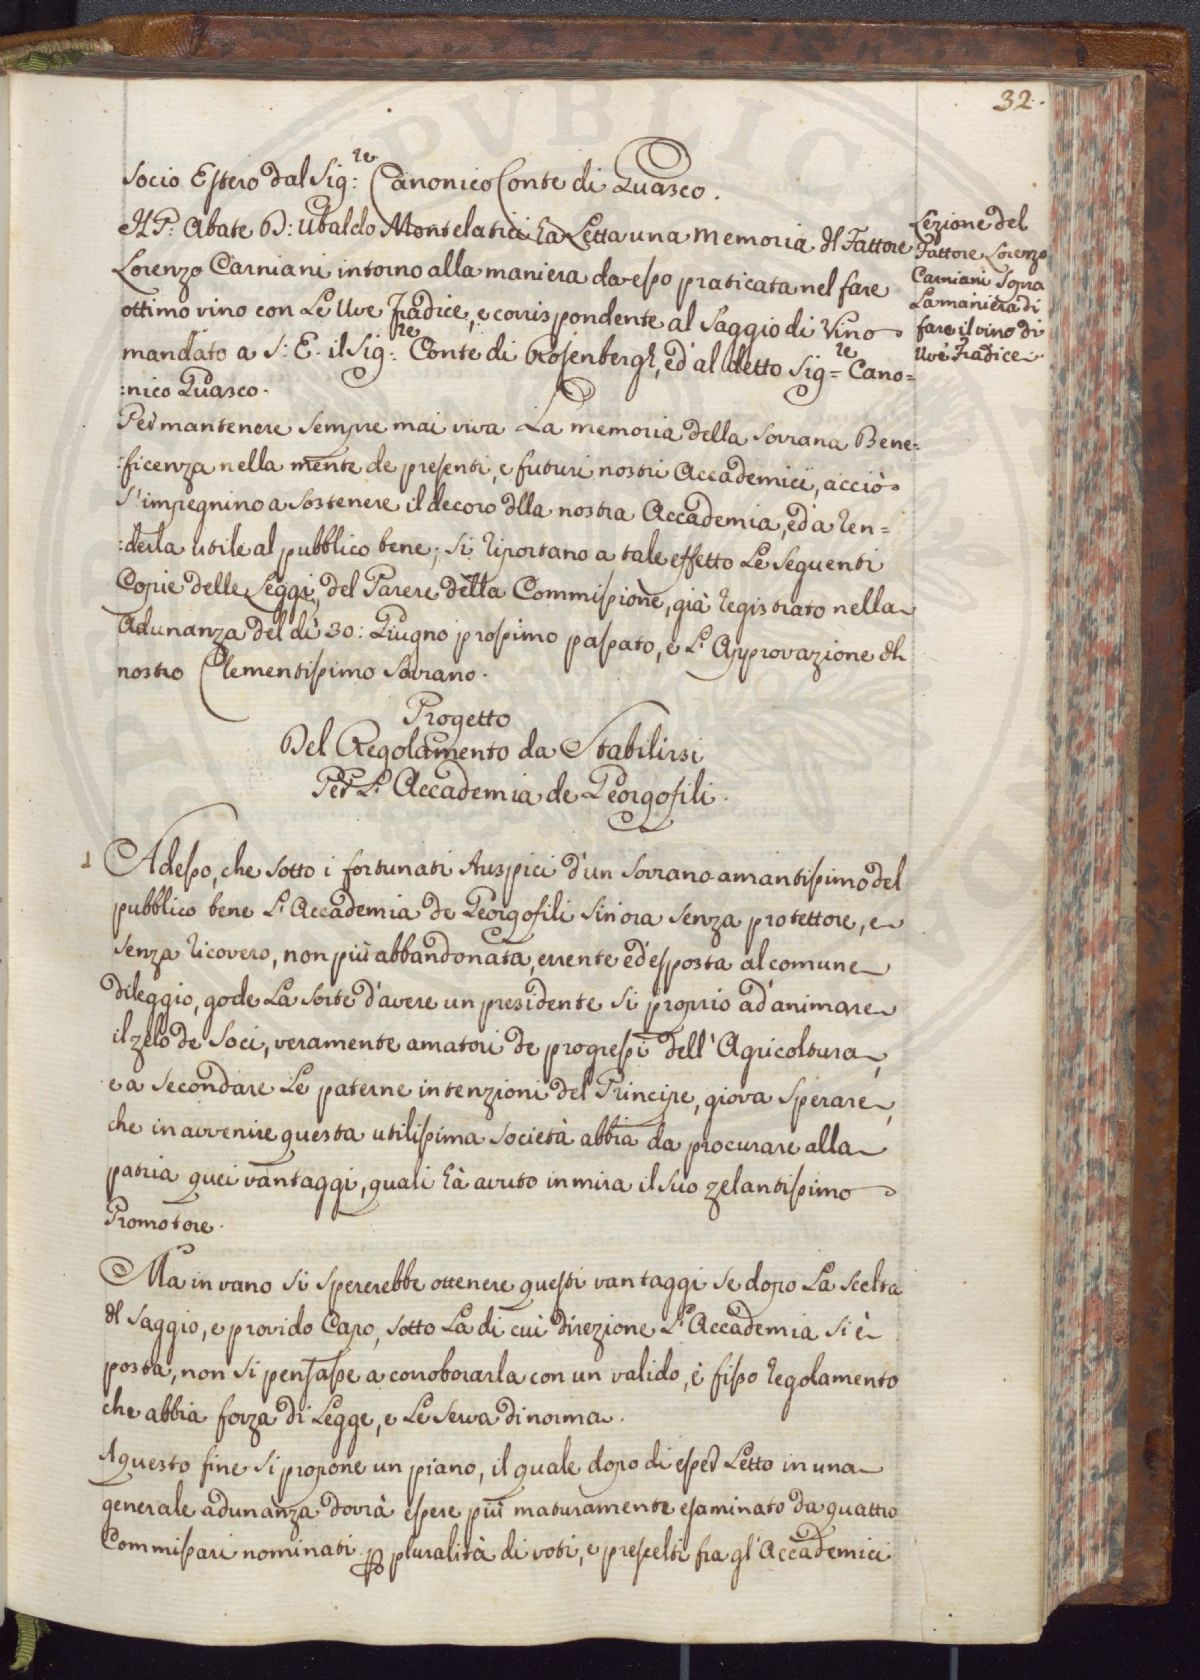 32.
Socio Estero dal Sig:re Canonico Conte di Guasco.
Il P: Abate D: Ubaldo Montelatici hà Letta una Memoria del Fattore
Lorenzo Carniani intorno alla maniera da esso praticata nel fare
ottimo vino con Le Uve Fradice, e corrispondente al Saggio di Vino
mandato a S: E. il Sig:re Conte di Rosenbergh, ed al detto Sig=re Cano=
:nico Guasco.
Lezione del
Fattore Lorenzo
Carniani Sopra
La maniera di
fare il vino di
Uve Fradice
Per mantenere sempre mai viva La memoria della Sovrana Bene=
:ficenza nella mente de presenti, e futuri nostri Accademici, acciò
s'impegnino a sostenere il decoro della nostra Accademia, ed a ren=
:derla utile al pubblico bene; si riportano a tale effetto Le Seguenti
Copie delle Leggi, del Parere della Commissione, già registrato nella
Adunanza del di 30: Giugno prossimo passato, e L'Approvazione del
nostro Clementissimo Sovrano.
Progetto
Del Regolamento da Stabilirsi
Per L'Accademia de Georgofili.
1 Adesso, che sotto i fortunati Auspici d'un Sovrano amantissimo del
pubblico bene L'Accademia de Georgofili sin'ora senza protettore, e
senza ricovero, non più abbandonata, errente ed esposta al comune
dileggio, gode La sorte d'avere un presidente si proprio ad'animare
il zelo de Soci, veramente amatori de progressi dell'Agricoltura,
e a secondare Le paterne intenzioni del Principe, giova Sperare,
che in avvenire questa utilissima società abbia da procurare alla
patria quei vantaggi, quali hà avuto in mira il suo zelantissimo
Promotore.
Ma in vano si spererebbe ottenere questi vantaggi se dopo La scelta
del saggio, e provido Capo, sotto La di cui direzione L'Accademia si è
posta, non si pensasse a corroborarla con un valido, e fisso regolamento
che abbia forza di Legge, e Le serva di norma.
A questo fine si propone un piano, il quale dopo di esser Letto in una
generale adunanza dovrà essere più maturamente esaminato da quattro
Commissari nominati p pluralità di voti, e prescelti fra gl'Accademici